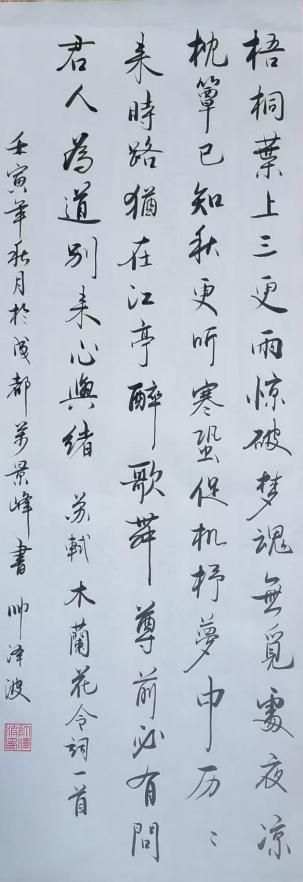 梧桐葉上三更雨惊破梦魂無覓處夜凉
枕簟已知秋更听寒蛩促机杼夢中历〻
来時路猶在江亭醉歌舞尊前必有問
君人為道别来心與緒 苏軾木蘭花令詞一首
壬寅年秋月於成都万景峰書帅泽波